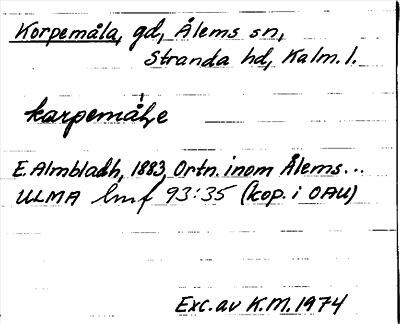 Korpemåla, gd, Ålems sn,
Stranda hd, Kalm. l.
E. Almbladh, 1883, Ortn. inom Ålems...
ULMA 93:35 (kop. i OAU)
Exc. av K.M. 1974